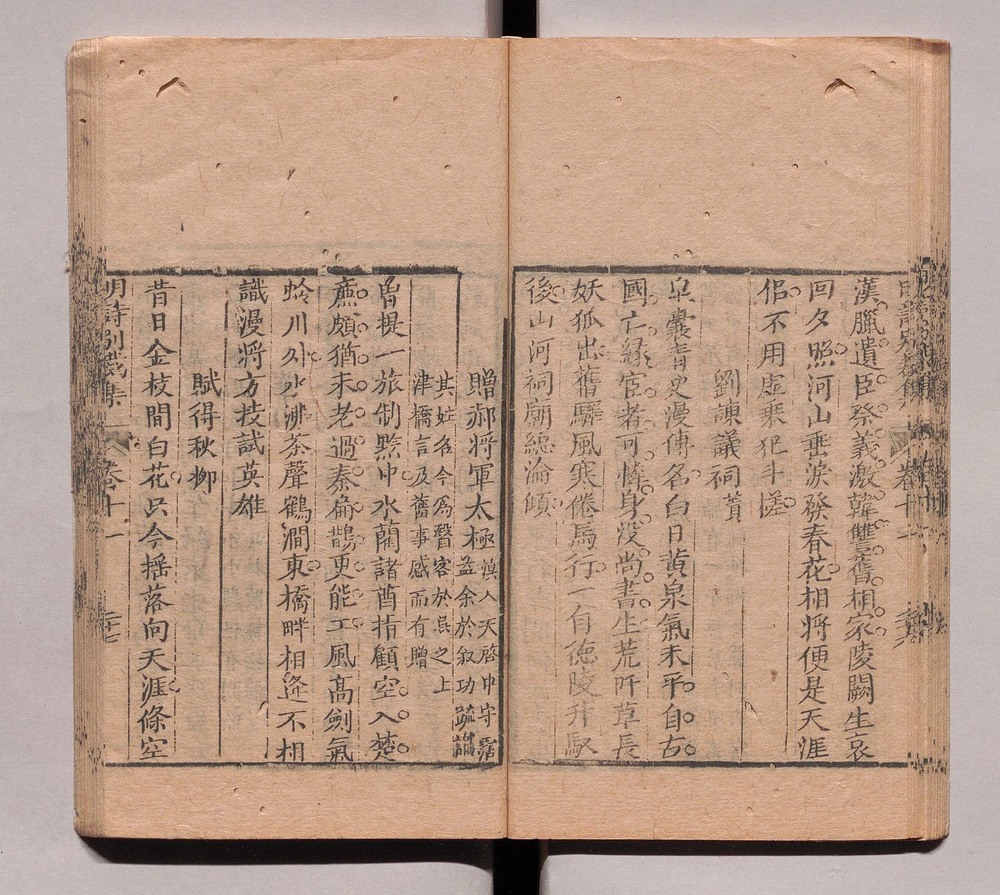 漢臘遺臣祭義激韓讐舊相家陵闕生哀
回夕照河山垂淚發春花相將便是天涯
侶不用虛乘犯斗槎
劉諫議祠蕡
皁囊青史漫傳名白日黃泉氣未平自古
國亡緣宦者可憐身沒尚書生荒阡草長
妖狐出舊驛風寒倦馬行一自德陵升馭
後山河祠廟總淪傾
贈郝將軍太極滇人天啓中守霑
益余於敘功疏識
其姓名今爲醫客於吳之上
津橋言及舊事感而有贈
曾提一旅制黔中水藺諸酋指顧空入楚
廉頗猶未老過秦扁鵲更能工風高劍氣
蛉川外水沸茶聲鶴澗東橋畔相逢不相
識漫將方技試英雄
賦得秋柳
昔日金枝間白花只今搖落向天涯條空
明詩別裁集
卷十一